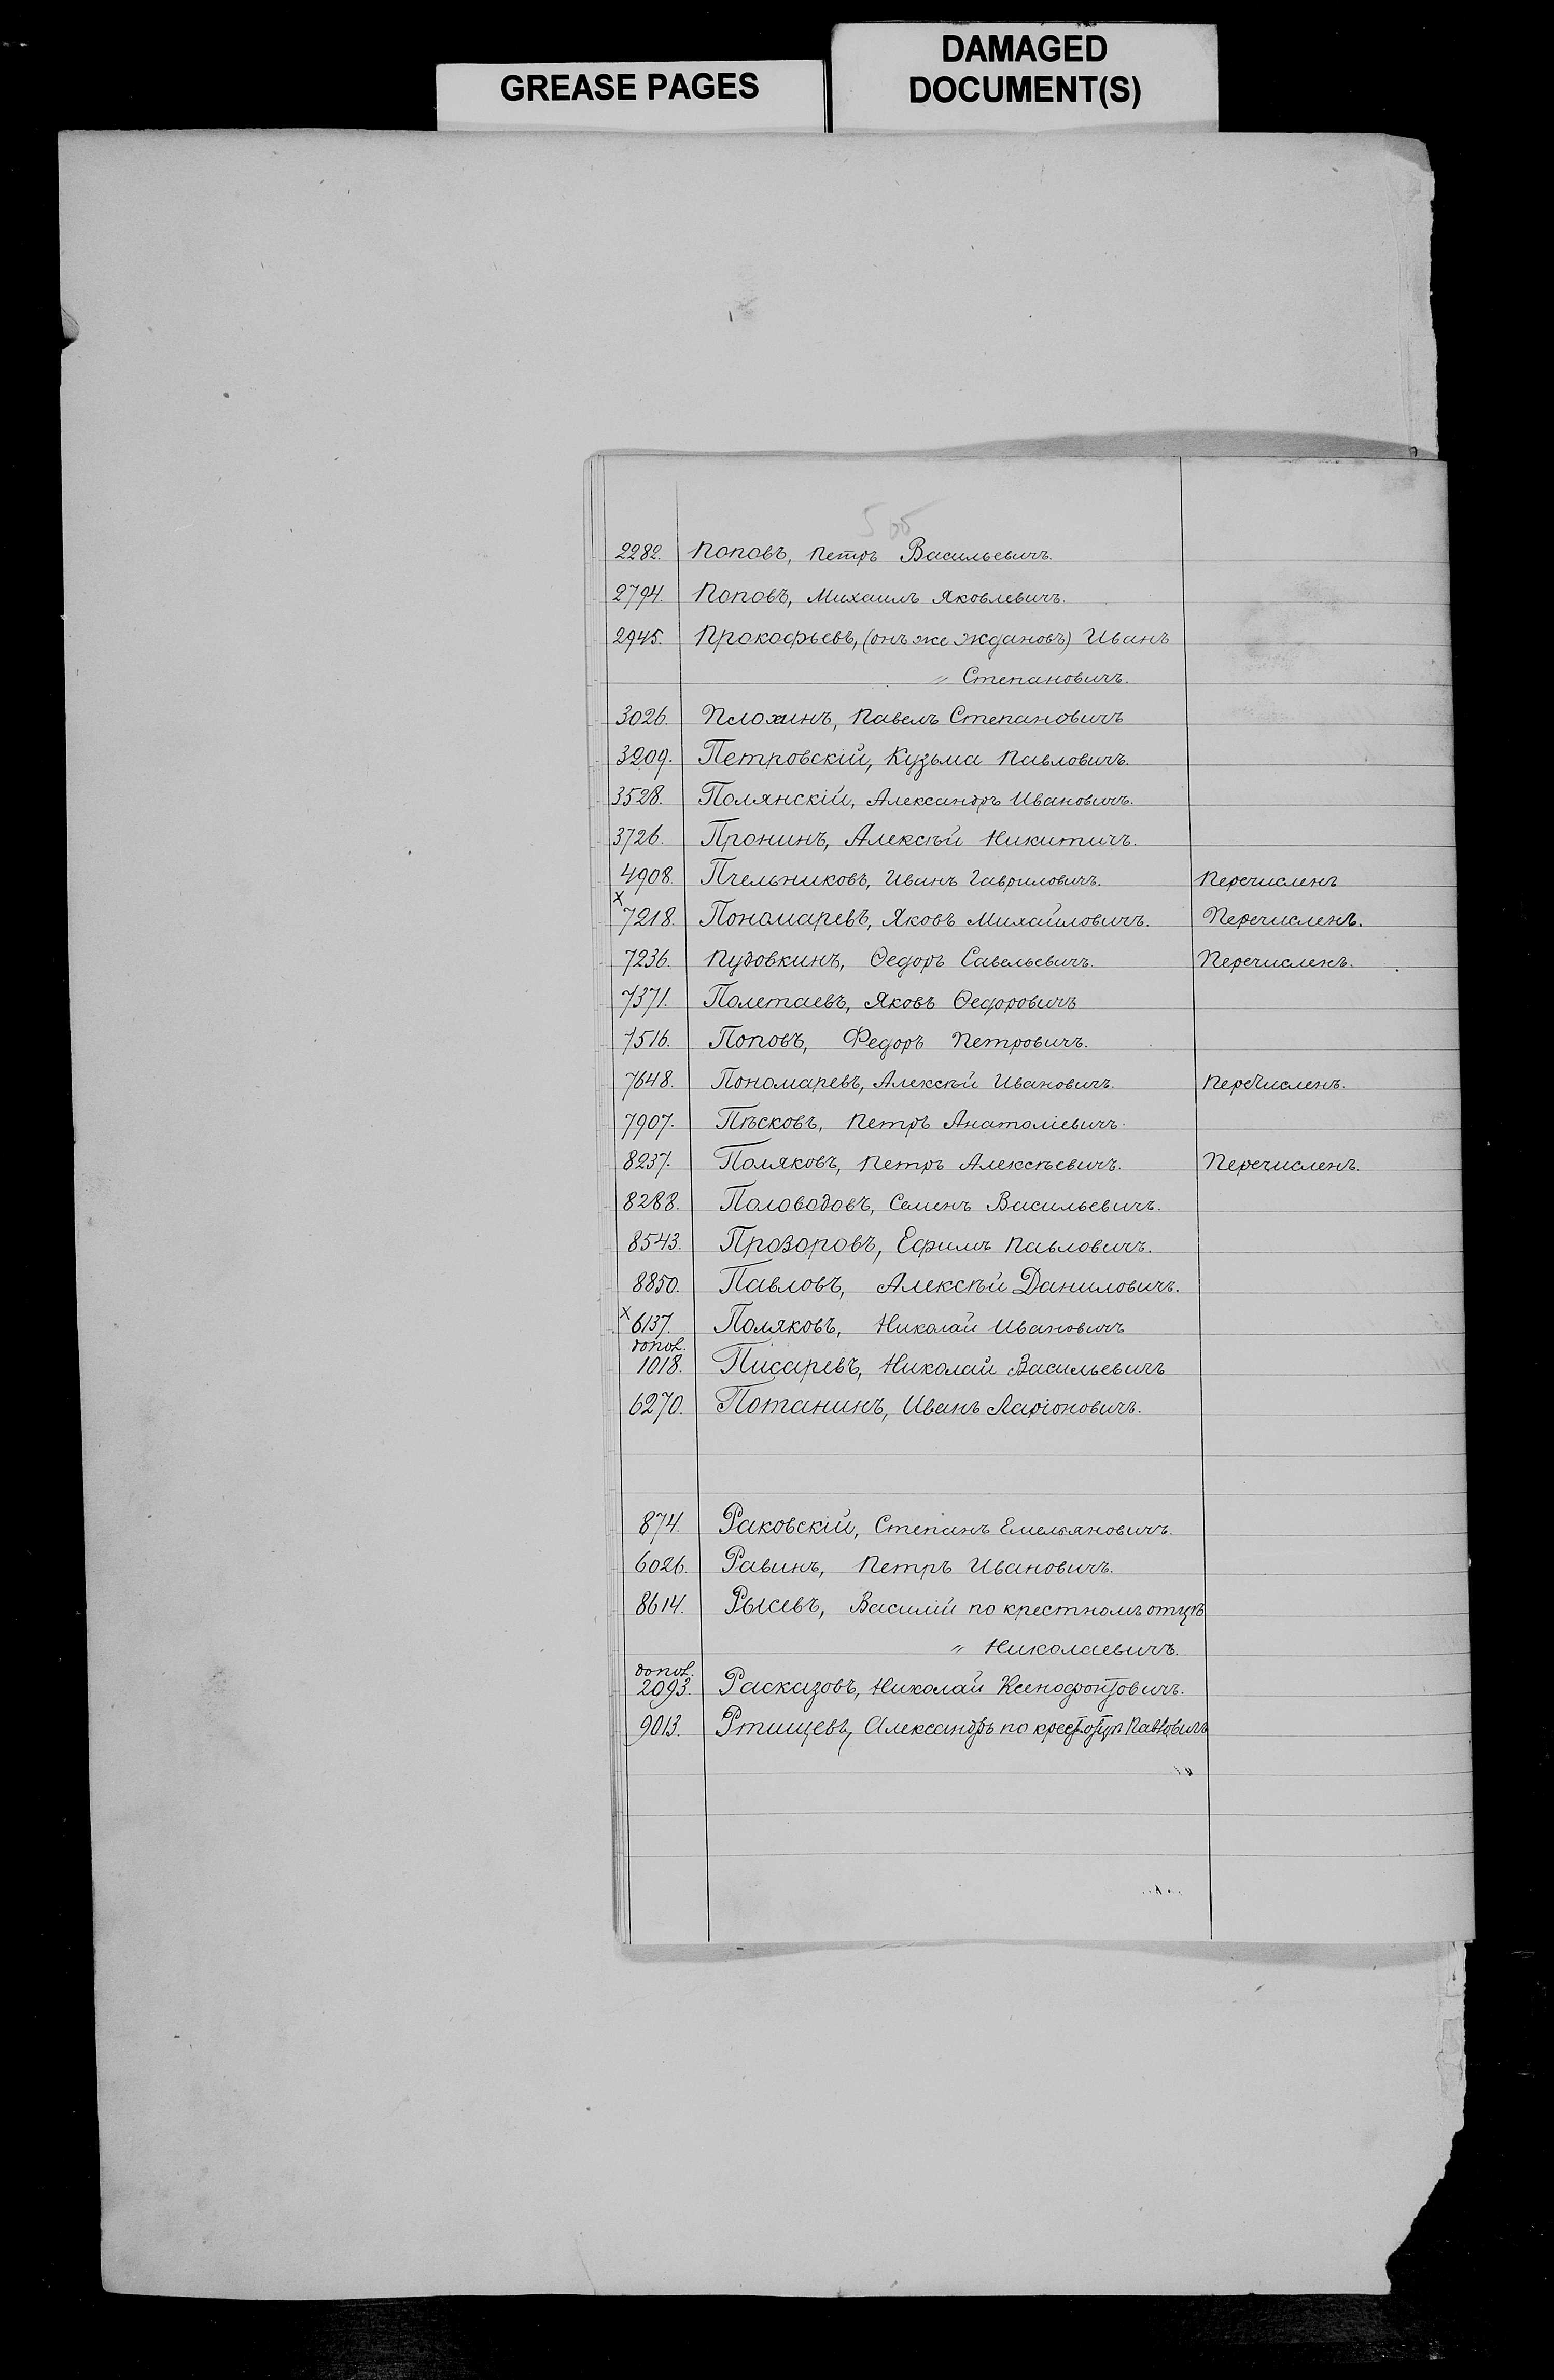 GREASE PAGES
DAMAGED
DOCUMENT(S)
2282. Поповъ, Петръ Васильевичъ.
2794. Поповъ, Михаилъ Яковлевичъ.
2945. Прокофьевъ, (онъ же Ждановъ) Иванъ
〃 Степановичъ.
3026. Плохинъ, Павелъ Степановичъ
3209. Петровскій, Кузьма Павловичъ.
3528. Полянскій, Александръ Ивановичъ.
3726. Пронинъ, Алексѣй Никитичъ.
4908. Пчельниковъ, Иванъ Гавриловичъ. Перечисленъ
x
7218. Пономаревъ, Яковъ Михайловичъ. Перечисленъ.
7236. Пудовкинъ, Ѳедоръ Савельевичъ. Перечисленъ.
7371. Полетаевъ, Яковъ Ѳедоровичъ
7516. Поповъ, Федоръ Петровичъ.
7648. Пономаревъ, Алексѣй Ивановичъ. Перечисленъ.
7907. Пѣсковъ, Петръ Анатоліевичъ.
8237. Поляковъ, Петръ Алексѣевичъ. Перечисленъ.
8288. Половодовъ, Семенъ Васильевичъ.
8543. Прозоровъ, Ефимъ Павловичъ.
8850. Павловъ, Алексѣй Даниловичъ.
x 6137. Поляковъ, Николай Ивановичъ
допол.
1018. Писаревъ, Николай Васильевичъ
6270. Потанинъ, Иванъ Ларіоновичъ.
874. Раковскій, Степанъ Емельяновичъ.
6026. Равинъ, Петръ Ивановичъ.
8614. Рысевъ, Василій по крестномъ отцѣ
〃 Николаевичъ.
допол.
2093. Расказовъ, Николай Ксенофонтовичъ.
9013. Ртищевъ, Александръ по крест. отцѣ Павловичъ